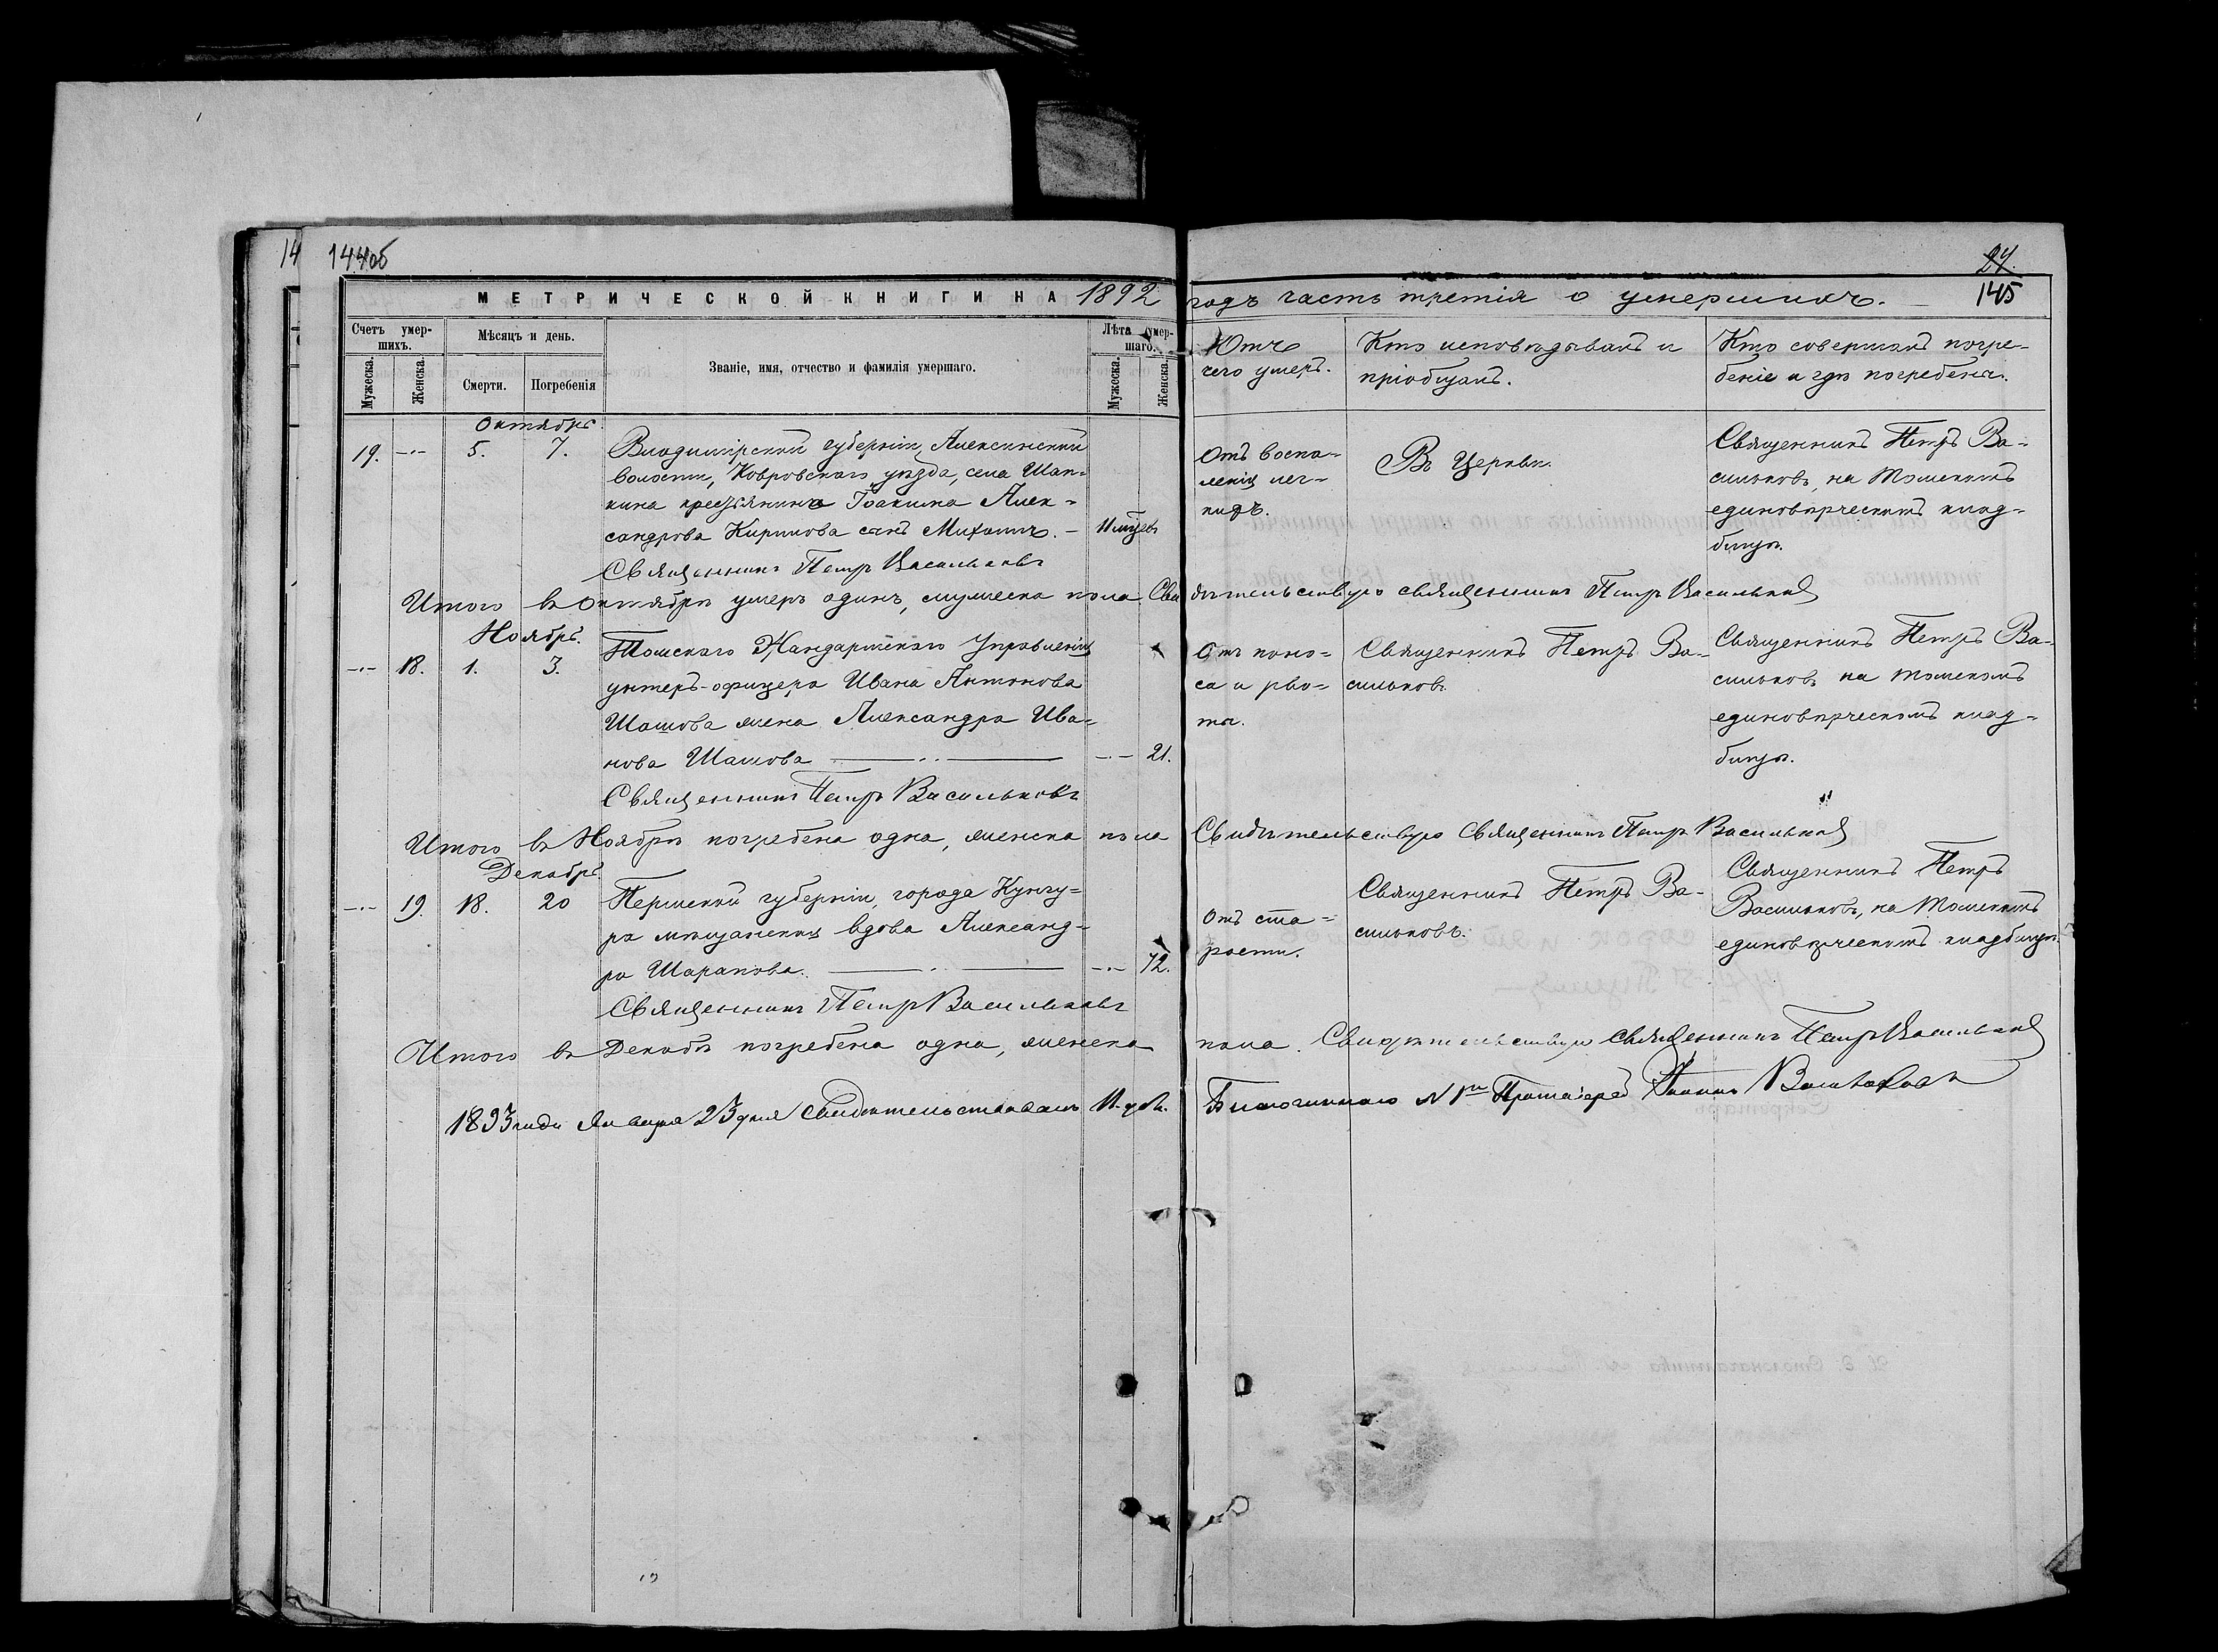 144об
14
МЕТРИЧЕСКОЙ КНИГИ НА 1892 годъ часть третія о умершихъ.
24.
145
Счетъ умер-
шихъ.
Мужеска.
Женска.
Мѣсяцъ и день.
Смерти.
Погребенія
Званіе, имя, отчество и фамилія умершаго.
Лѣта умер-
шаго.
Мужеска.
Женска.
Отъ
чего умеръ.
Кто исповѣдывалъ и
пріобщалъ.
Кто совершалъ погре-
беніе и гдѣ погребены.
Октябрь.
19. -·- 5. 7.
Владимірской губерніи, Алексинской
волости, Ковровскаго уѣзда, села Шап-
кина крестьянина Іоакима Алек-
сандрова Кирикова сынъ Михаилъ. –
11 мѣсяц.
Священникъ Петръ Васильковъ
Отъ воспа-
ленія лег-
кихъ.
Въ Церкви.
Священникъ Петръ Ва-
сильковъ, на Томскомъ
единовѣрческомъ клад-
бищѣ.
Итого въ Октябрѣ умеръ одинъ, мужеска пола. Свидѣтельствую священникъ Петръ Васильковъ
Ноябрь.
-·- 18. 1. 3.
Томскаго Жандармскаго Управленія
унтеръ-офицера Ивана Антонова
Шашова жена Александра Ива-
нова Шашова -·- 21.
Священникъ Петръ Васильковъ
Отъ поно-
са и рво-
ты.
Священникъ Петръ Ва-
сильковъ.
Священникъ Петръ Ва-
сильковъ на томскомъ
единовѣрческомъ клад-
бищѣ.
Итого въ Ноябрѣ погребена одна, женска пола Свидѣтельствую Священникъ Петръ Васильковъ
Декабрь.
-·- 19. 18. 20
Пермской губерніи, города Кунгу-
ра мѣщанская вдова Александ-
ра Шарапова. -·- 72.
Священникъ Петръ Васильковъ
Отъ ста-
рости.
Священникъ Петръ Ва-
сильковъ.
Священникъ Петръ
Васильковъ, на Томскомъ
единовѣрческомъ кладбищѣ.
Итого въ Декабрѣ погребена одна, женска пола. Свидѣтельствую Священникъ Петръ Васильковъ
1893 года Января 23 дня свидѣтельствовалъ Благочинного №1й Протоіерей